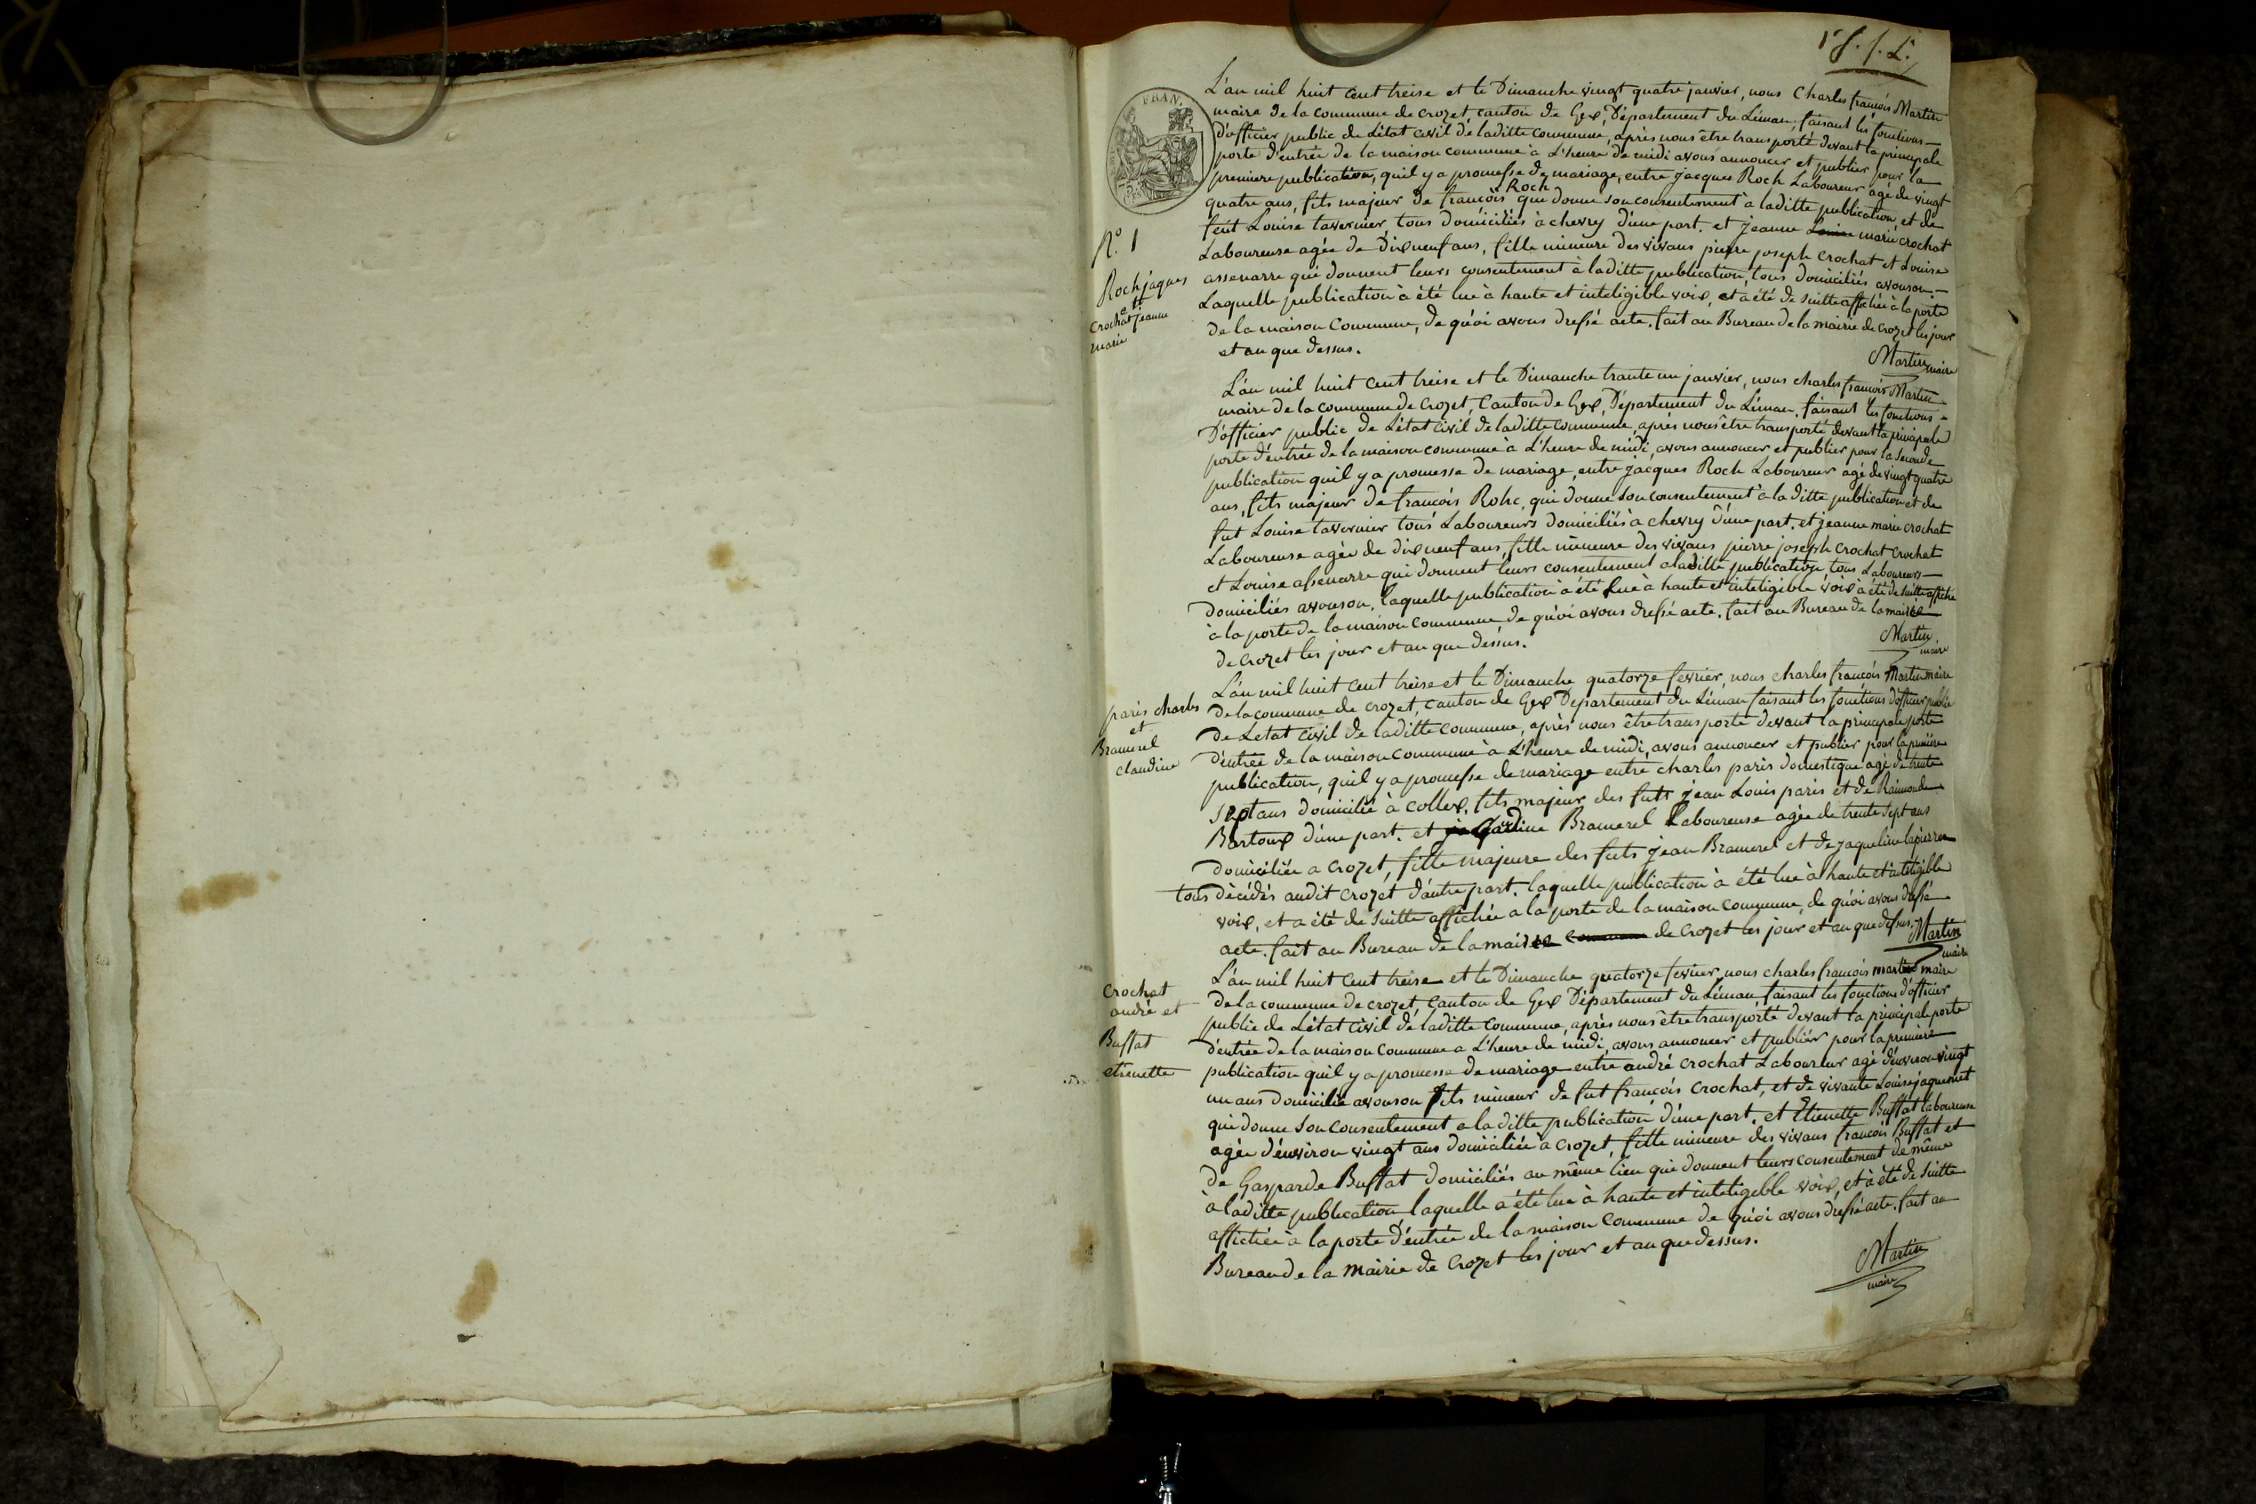 L'an mil huit cent treise et le Dimanche vingt quatre janvier, nous Charles françois Martin
maire de la commune de crozet, canton de Gex, Département du Léman, faisant les fonctions
d'officier public de L'état civil de laditte commune, après nous être transporté devant la principale
porte d'entrée de la maison commune à L'heure de midi avons annoncer et publier pour la
premiere publication, quil y a promesse de mariage, entre jacques Roch Laboureur agé de vingt
Roch
quatre ans, fils majeur de françois qui donne son consentement à laditte publication et de
feüt Louise tavernier, tous domiciliés à chevry d'une part. et jeanne Louise marie crochat
Laboureuse agée de dix neuf ans, fille mineure des vivans pierre joseph Crochat et Louise
assenarre qui donnent leurs consentement à laditte publication, tous domiciliés avouson
Laquelle publication à été lue à haute et inteligible voix, et à été de suitte affichée à la porte
de la maison Commune, de quoi avons dressé acte. fait au Bureau de la mairie de crozet les jour
et an que dessus.
Martin maire
N.º 1
Roch jaques
et
Crochat jeanne
marie
L'an mil huit cent treise et le Dimanche trante un janvier, nous charles françois Martin
maire de la commune de Crozet, Canton de Gex, Département du Léman, faisant les fonctions
D'officier public de L'état Civil de laditte commune, après nous être transporté devant la principale
porte d'entrée de la maison commune à L'heure de midi, avons annoncer et publier pour la seconde
publication quil y a promesse de mariage, entre jacques Roch Laboureur agé de vingt quatre
ans, fils majeur de françois Rohc, qui donne son consentement à la ditte publication et de
fut Louise tavernier tous Laboureurs domiciliés à chevry d'une part. et jeanne marie crochat
Laboureuse agée de dix neuf ans, fille mineure des vivans pierre joseph Crochat Crochat
et Louise assenarre qui donnent leurs consentement a laditte publication tous Laboureurs
domiciliés avouson, laquelle publication à été lue à haute et inteligible voix à été de suitte affiché
à la porte de la maison commune de quoi avons dressé acte. fait au Bureau de la mairie
de crozet les jour et an que dessus.
Martin
maire
paris charles
et
Bramerel
claudine
L'an mil huit Cent treise et le Dimanche quatorze fevrier, nous charles françois Martin maire
de la commune de crozet, canton de Gex Département du Léman faisant les fonctions d'officier public
de Letat Civil de laditte Commune, après nous être transporté devant la principale porte
d'entrée de la maison commune à L'heure de midi, avons annoncer et publier pour la première
publication, quil y a promesse de mariage entre charles paris domestique agé de trente
sept ans domicilié à collex, fils majeur des futs jean Louis paris et de Raimonde
Bartoux d'une part. et Claudine Bramerel Laboureuse agée de trente sept ans
domiciliée a crozet, fille majeure des futs jean Bramerel et de jaqueline lapierre
tous décédés audit crozet d'autre part. laquelle publication à été lue à haute et inteligible
voix, et a été de suitte affichée a la porte de la maison commune, de quoi avons dressé
acte. fait au Bureau de la mairie commune de crozet les jour et an que dessus. Martin
maire
Crochat
andré et
Buffat
etienette
L'an mil huit Cent treise et le Dimanche quatorze fevrier, nous charles françois martin maire
de la commune de crozet, Canton de Gex Département du Léman faisant les fonctions d'officier
public de L'état Civil de laditte Commune, après nous être transporté devant la principale porte
d'entrée de la maison Commune a L'heure de midi, avons annoncer et publier pour la premiere
publication quil y a promesse de mariage entre andré Crochat Laboureur agé d'environ vingt
un ans domicilié avouson fils mineur de fut françois Crochat, et de vivante Louise jaquemet
qui donne son consentement a la ditte publication d'une part. et Etienette Buffat laboureuse
agée d'environ vingt ans domiciliée à crozet, fille mineure des vivans françois Buffat et
de Gasparde Buffat domiciliés au même lieu qui donnent leurs consentement de même
à laditte publication laquelle a été lue à haute et inteligible voix, et à été de suitte
affichée à la porte d'entrée de la maison Commune de quoi avons dressé acte. fait au
Bureau de la Mairie de Crozet les jour et an que dessus.
Martin
maire